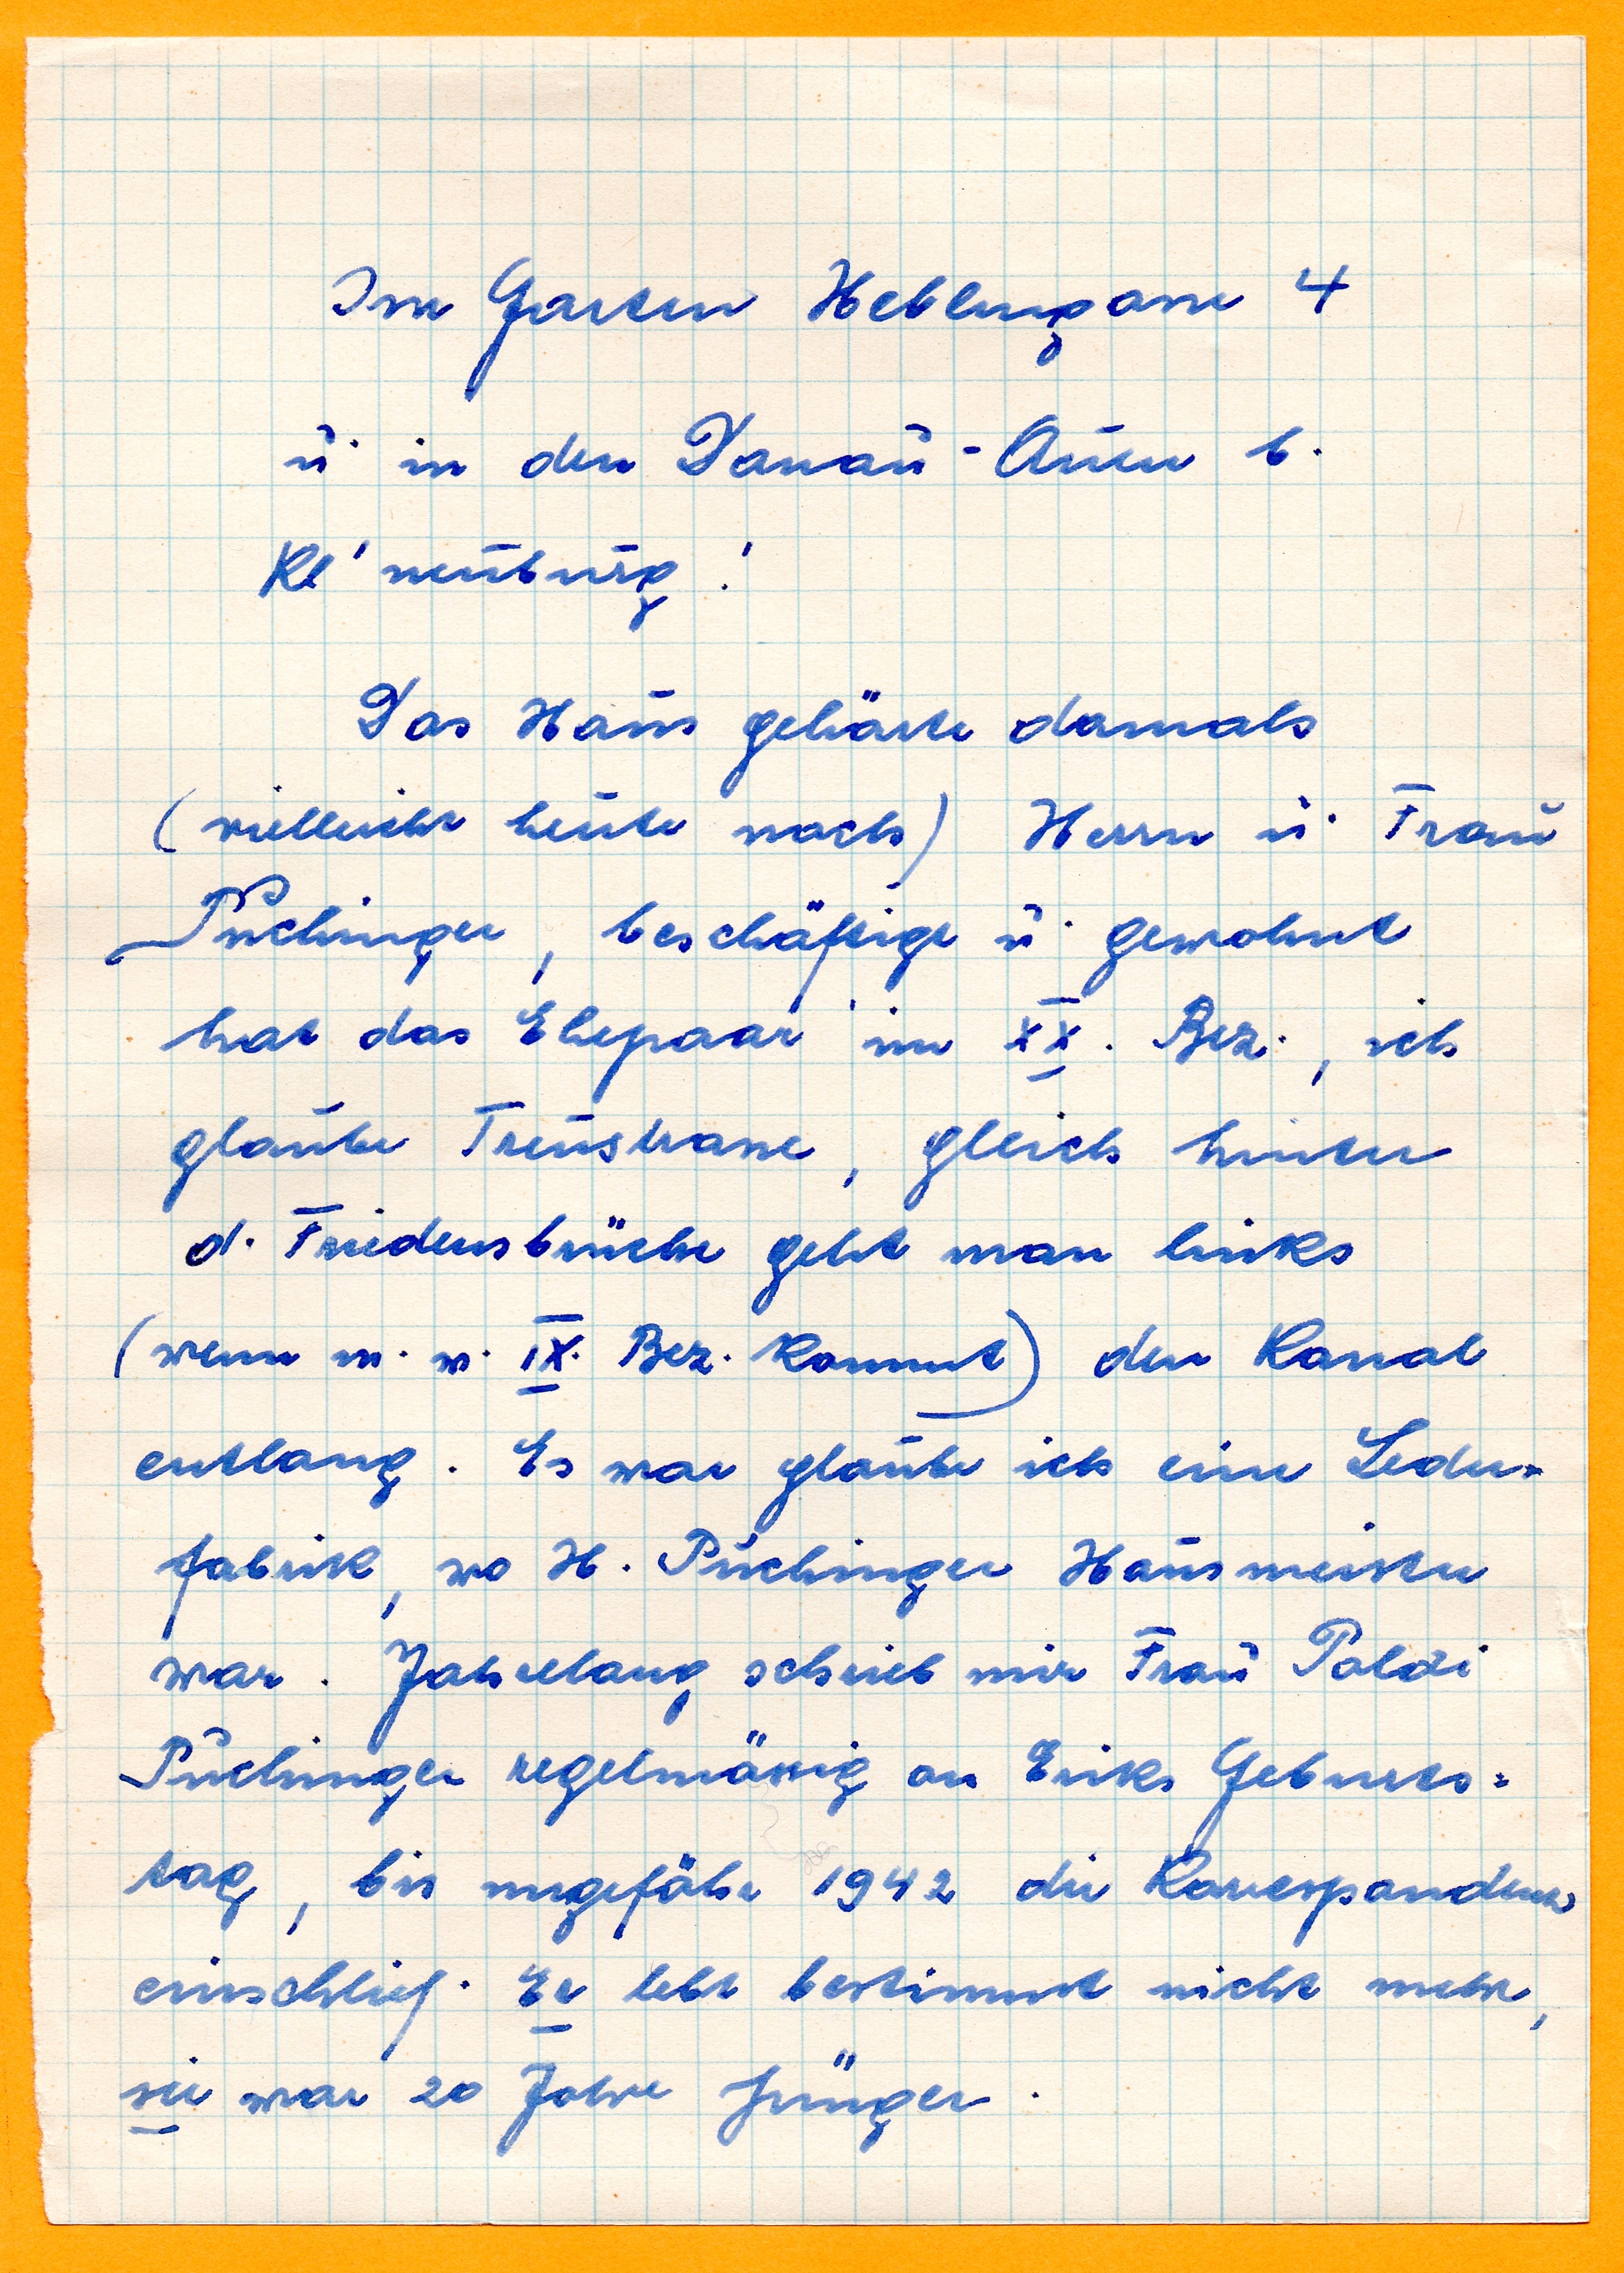 Im Garten Heblergasse 4
u. in den Donau-Auen b.
Kl'neuburg!
Das Haus gehörte damals
(vielleicht heute noch) Herrn u. Frau
Puchinger, beschäftigt u. gewohnt
hat das Ehepaar im XX. Bez., ich
glaube Treustrasse, gleich hinter
d. Friedensbrücke geht man links
(wenn m. v. IX. Bez. kommt) den Kanal
entlang. Es war glaube ich eine Leder=
fabrik, wo H. Puchinger Hausmeister
war. Jahrelang schrieb mir Frau Poldi
Puchinger regelmässig an Eriks Geburts=
tag, bis ungefähr 1942 die Korrespondenz
einschlief. Er lebt bestimmt nicht mehr,
sie war 20 Jahre jünger.